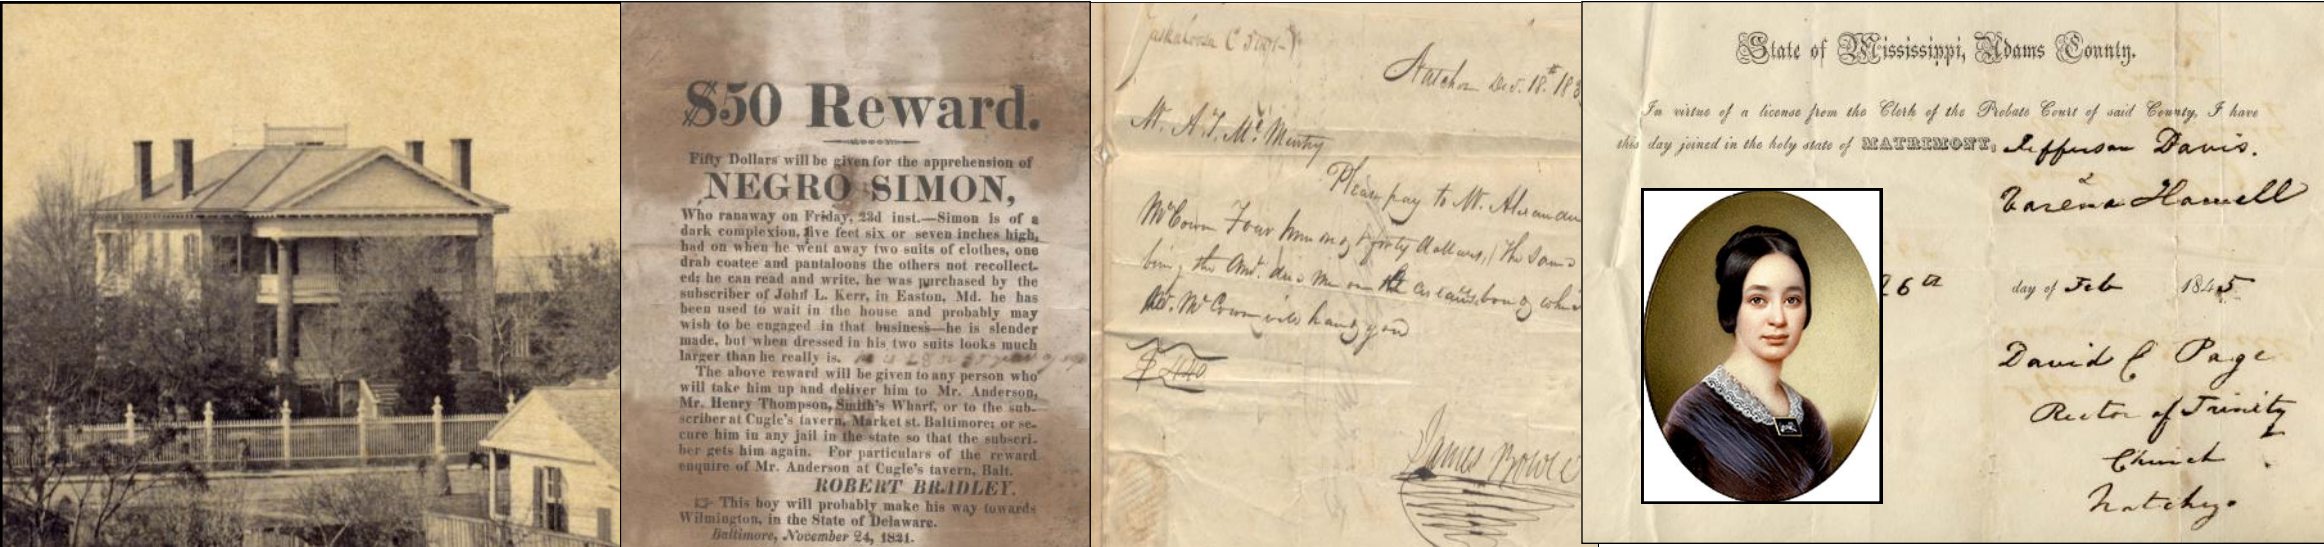 $50 Reward.
Fifty Dollars will be given for the apprehension of
NEGRO SIMON,
Who ranaway on Friday, 23d inst.—Simon is of a
dark complexion, five feet six or seven inches high,
had on when he went away two suits of clothes, one
drab coatee and pantaloons the others not recollect-
ed; he can read and write, he was purchased by the
subscriber of John L. Kerr, in Easton, Md. he has
been used to wait in the house and probably may
wish to be engaged in that business—he is slender
made, but when dressed in his two suits looks much
larger than he really is.
The above reward will be given to any person who
will take him up and deliver him to Mr. Anderson,
Mr. Henry Thompson, Smith's Wharf, or to the sub-
scriber at Cugle's tavern, Market st. Baltimore; or se-
cure him in any jail in the state so that the subscri-
ber gets him again. For particulars of the reward
enquire of Mr. Anderson at Cugle's tavern, Balt.
ROBERT BRADLEY.
☞ This boy will probably make his way towards
Wilmington, in the State of Delaware.
Baltimore, November 24, 1821.
Natchez Dec. 18th 183
Mr. A. T. McMurtry
Please pay to Mr. Alexander
McCown Four hundred & forty dollars, the same
being the Amt. due me on
Mr. McCown will hand you
$440
James Bowie
State of Mississippi, Adams County.
In virtue of a license from the Clerk of the Probate Court of said County, I have
this day joined in the holy state of MATRIMONY, Jefferson Davis.
&
Varena Howell
26th day of Feb 1845
David C Page
Rector of Trinity
Church
Natchez